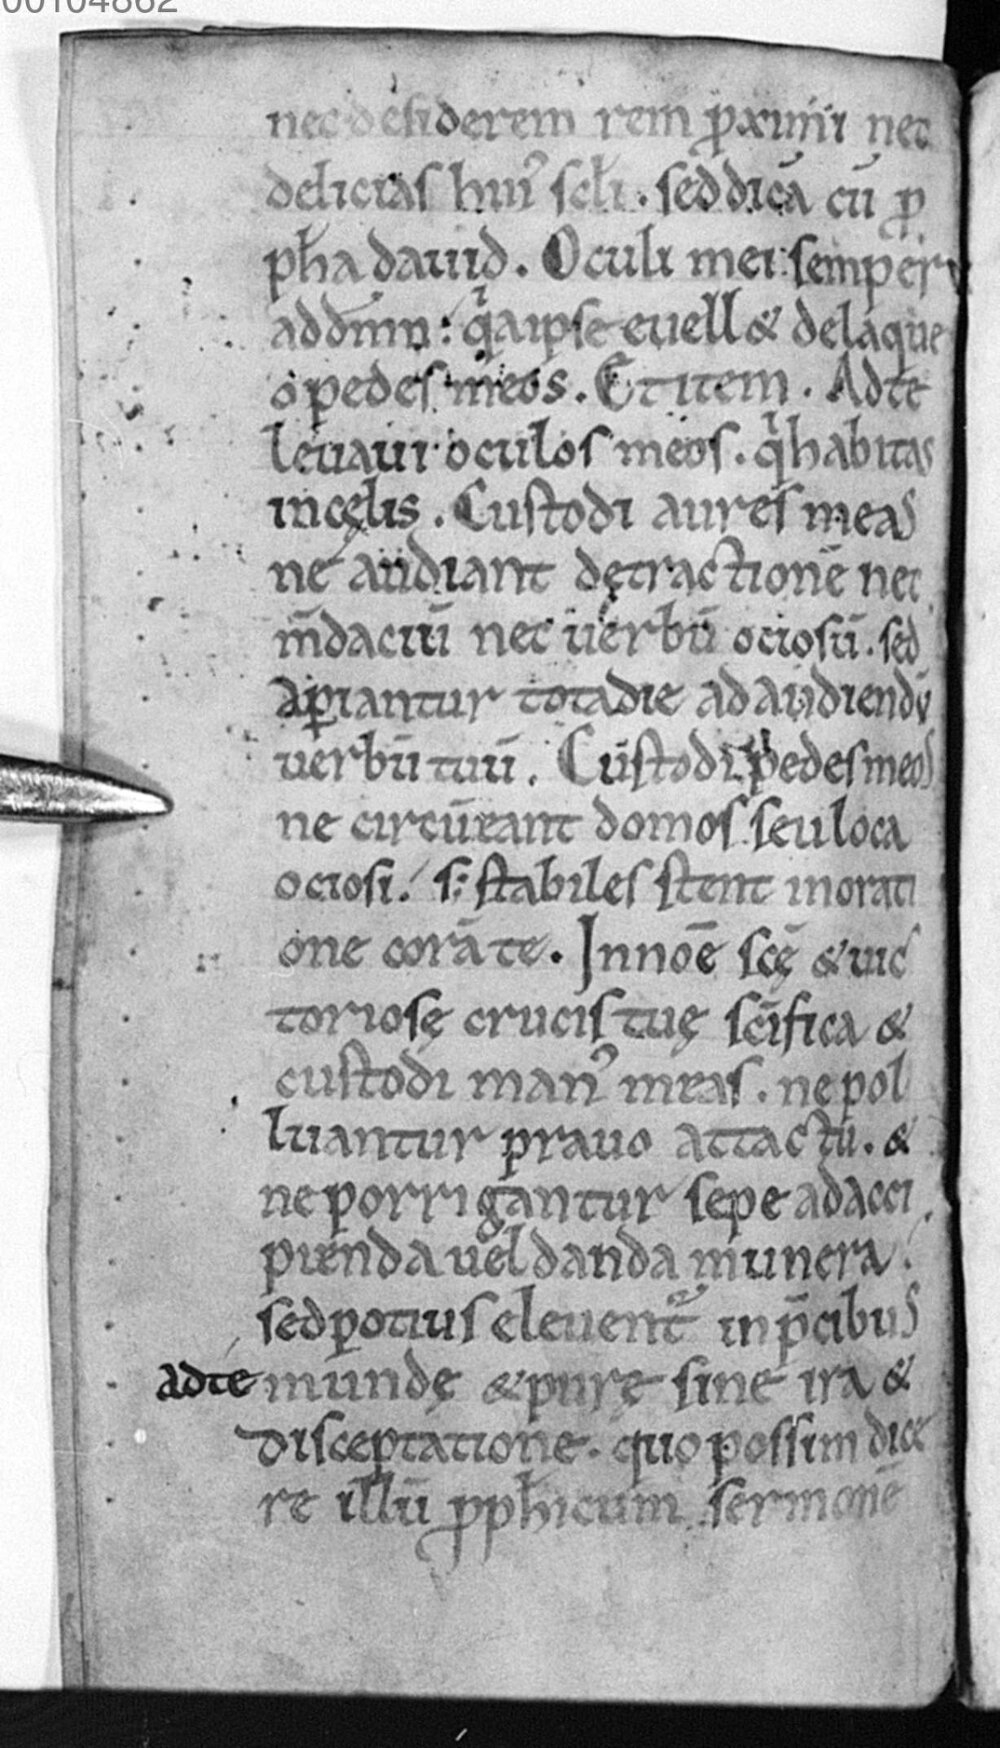 00104862
nec desiderem rem ꝓximi nec
delicias hui᾽ sc̄li. sed dicā cū ꝓ
ph̄a dauid. Oculi mei semper
ad dnm̄: qͥa ipse euell& de laque
o pedes meos. Et item. Ad te
leuaui oculos meos. qͥ habitas
in cęlis. Custodi aures meas
ne audiant dętractionē nec
m̄daciū nec uerbū ociosū. sed
aꝑiantur tota die ad audiendū
uerbū tuū. Custodi pedes meos
ne circūeant domos seu loca
ociosi. s; stabiles stent in orati
one corā te. In noē scę̄ & uic
toriosę crucis tuę sc̄ifica &
custodi man᾽ meas. ne pol
luantur prauo attactu. &
ne porrigantur sepe ad acci
pienda uel danda munera.
sed potius eleuent᷑ in p̄cibus
ad te mundę & purę sine ira &
disceptatione. quo possim dice
re illū ꝓph̄icum sermonē